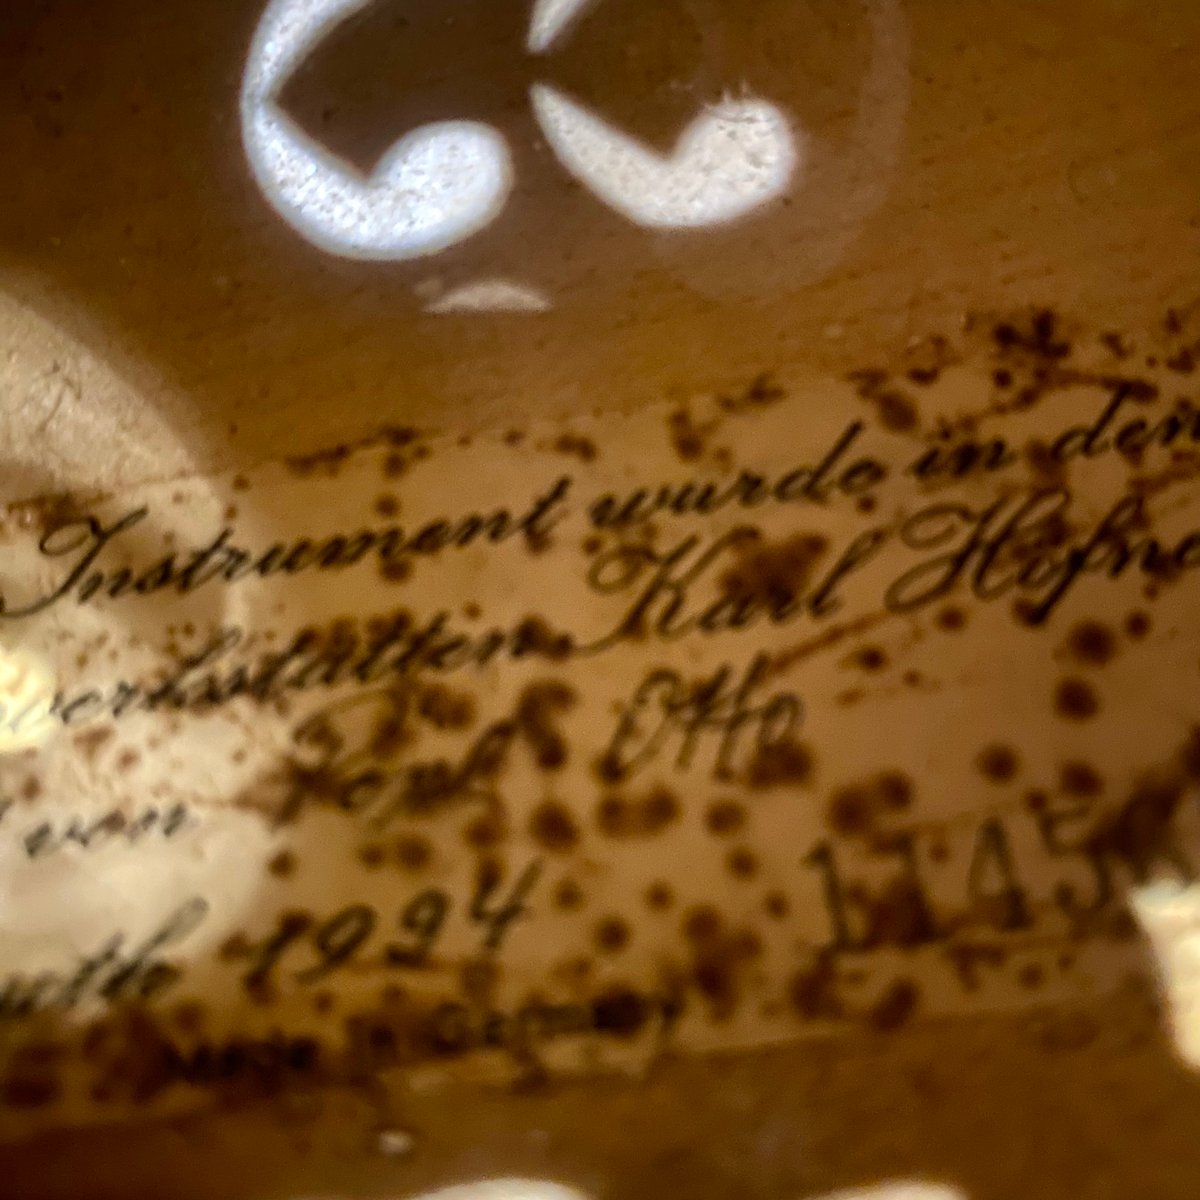 Instrument wurde in den
werkstatten Karl Hofne
von Otto
uth 1994 1145
Made in Germany